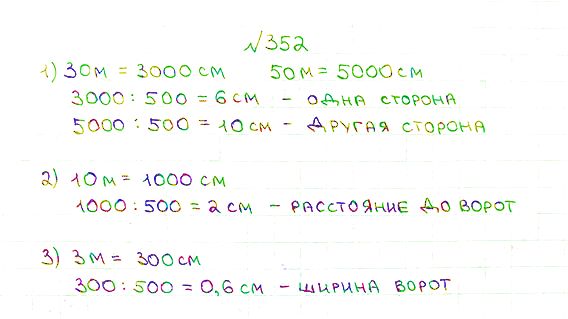 √352
1) 30 м = 3000 см 50 м = 5000 см
3000 : 500 = 6 см - одна сторона
5000 : 500 = 10 см - другая сторона
2) 10 м = 1000 см
1000 : 500 = 2 см - расстояние до ворот
3) 3 м = 300 см
300 : 500 = 0,6 см - ширина ворот